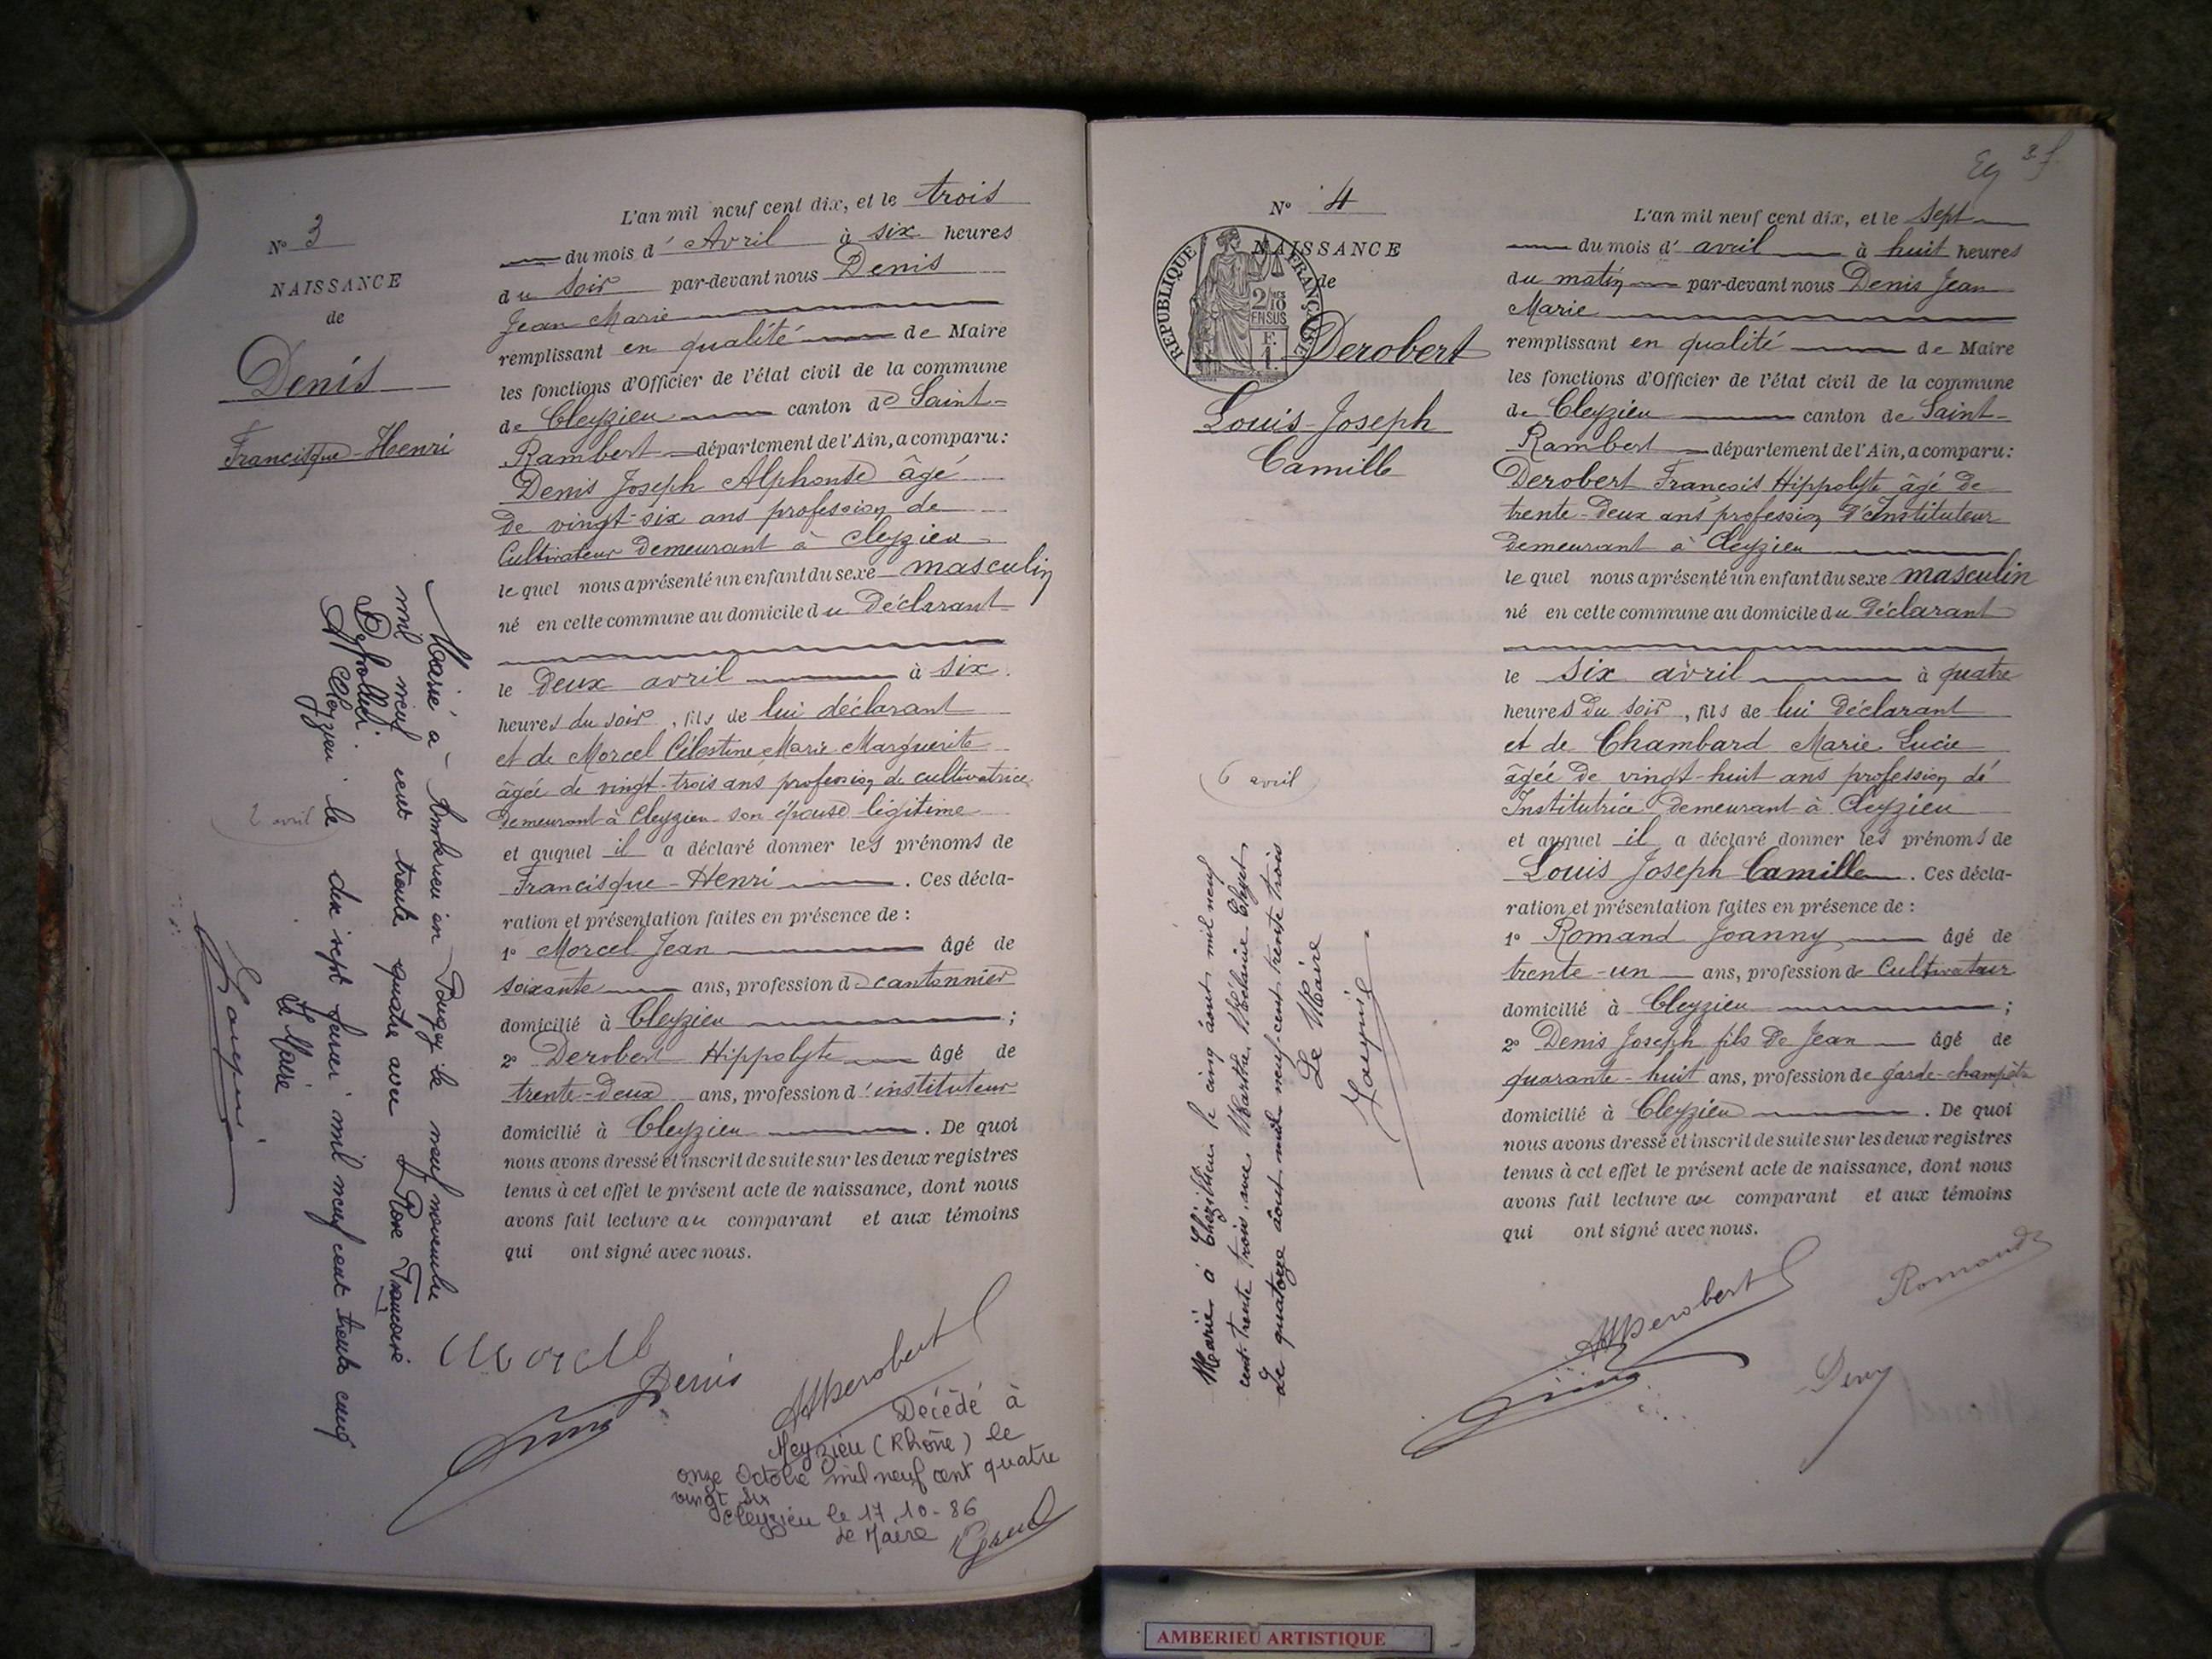 N° 3
NAISSANCE
de
Denis
Francisque-Henri
L'an mil neuf cent dix, et le trois
du mois d'Avril à six heures
du soir par-devant nous Denis
Jean Marie
remplissant en qualité de Maire
les fonctions d'Officier de l'état civil de la commune
de Cleyzieu canton de Saint-
Rambert département de l'Ain, a comparu:
Denis Joseph Alphonse âgé
de vingt-six ans profession de
Cultivateur demeurant à Cleyzieu
le quel nous a présenté un enfant du sexe masculin
né en cette commune au domicile du Déclarant
le deux avril à six
heures du soir, fils de lui déclarant
et de Morcel Célestine Marie Marguerite
âgée de vingt-trois ans profession de cultivatrice
demeurant à Cleyzieu son épouse légitime
et auquel il a déclaré donner les prénoms de
Francisque-Henri. Ces décla-
ration et présentation faites en présence de :
1° Morcel Jean âgé de
soixante ans, profession de cantonnier
domicilié à Cleyzieu ;
2° Derobert Hippolyte âgé de
trente-deux ans, profession d'instituteur
domicilié à Cleyzieu. De quoi
nous avons dressé et inscrit de suite sur les deux registres
tenus à cet effet le présent acte de naissance, dont nous
avons fait lecture au comparant et aux témoins
qui ont signé avec nous.
Marié à Amberieu en Bugey le neuf novembre
mil neuf cent trente quatre avec Flore Françoise
A Cleyzieu le dix sept janvier mil neuf cent trente cinq
Le Maire
2 avril
Morcel
Denis
Derobert
Décédé à
Meyzieu (Rhône) le
onze Octobre mil neuf cent quatre
vingt six
Cleyzieu le 17.10-86
Le Maire
Eg 3 f.
N° 4
NAISSANCE
de
RÉPUBLIQUE FRANÇAISE
2/10 EN SUS
F.
1.
Derobert
Louis-Joseph
Camille
L'an mil neuf cent dix, et le sept
du mois d'avril à huit heures
du matin par-devant nous Denis Jean
Marie
remplissant en qualité de Maire
les fonctions d'Officier de l'état civil de la commune
de Cleyzieu canton de Saint-
Rambert département de l'Ain, a comparu:
Derobert François Hippolyte âgé de
trente-deux ans profession d'Instituteur
demeurant à Cleyzieu
le quel nous a présenté un enfant du sexe masculin
né en cette commune au domicile du Déclarant
le six avril à quatre
heures du soir, fils de lui Déclarant
et de Chambard Marie Lucie
âgée de vingt-huit ans profession de
Institutrice demeurant à Cleyzieu
et auquel il a déclaré donner les prénoms de
Louis Joseph Camille. Ces décla-
ration et présentation faites en présence de :
1° Romand Joanny âgé de
trente-un ans, profession de Cultivateur
domicilié à Cleyzieu ;
2° Denis Joseph fils de Jean âgé de
quarante-huit ans, profession de garde-champêtre
domicilié à Cleyzieu. De quoi
nous avons dressé et inscrit de suite sur les deux registres
tenus à cet effet le présent acte de naissance, dont nous
avons fait lecture au comparant et aux témoins
qui ont signé avec nous.
6 avril
Marié à le cinq août mil neuf
cent trente trois avec Marthe
Le quatorze août mil neuf-cent trente trois
Le Maire
Derobert
Romand
Denis
AMBERIEU ARTISTIQUE